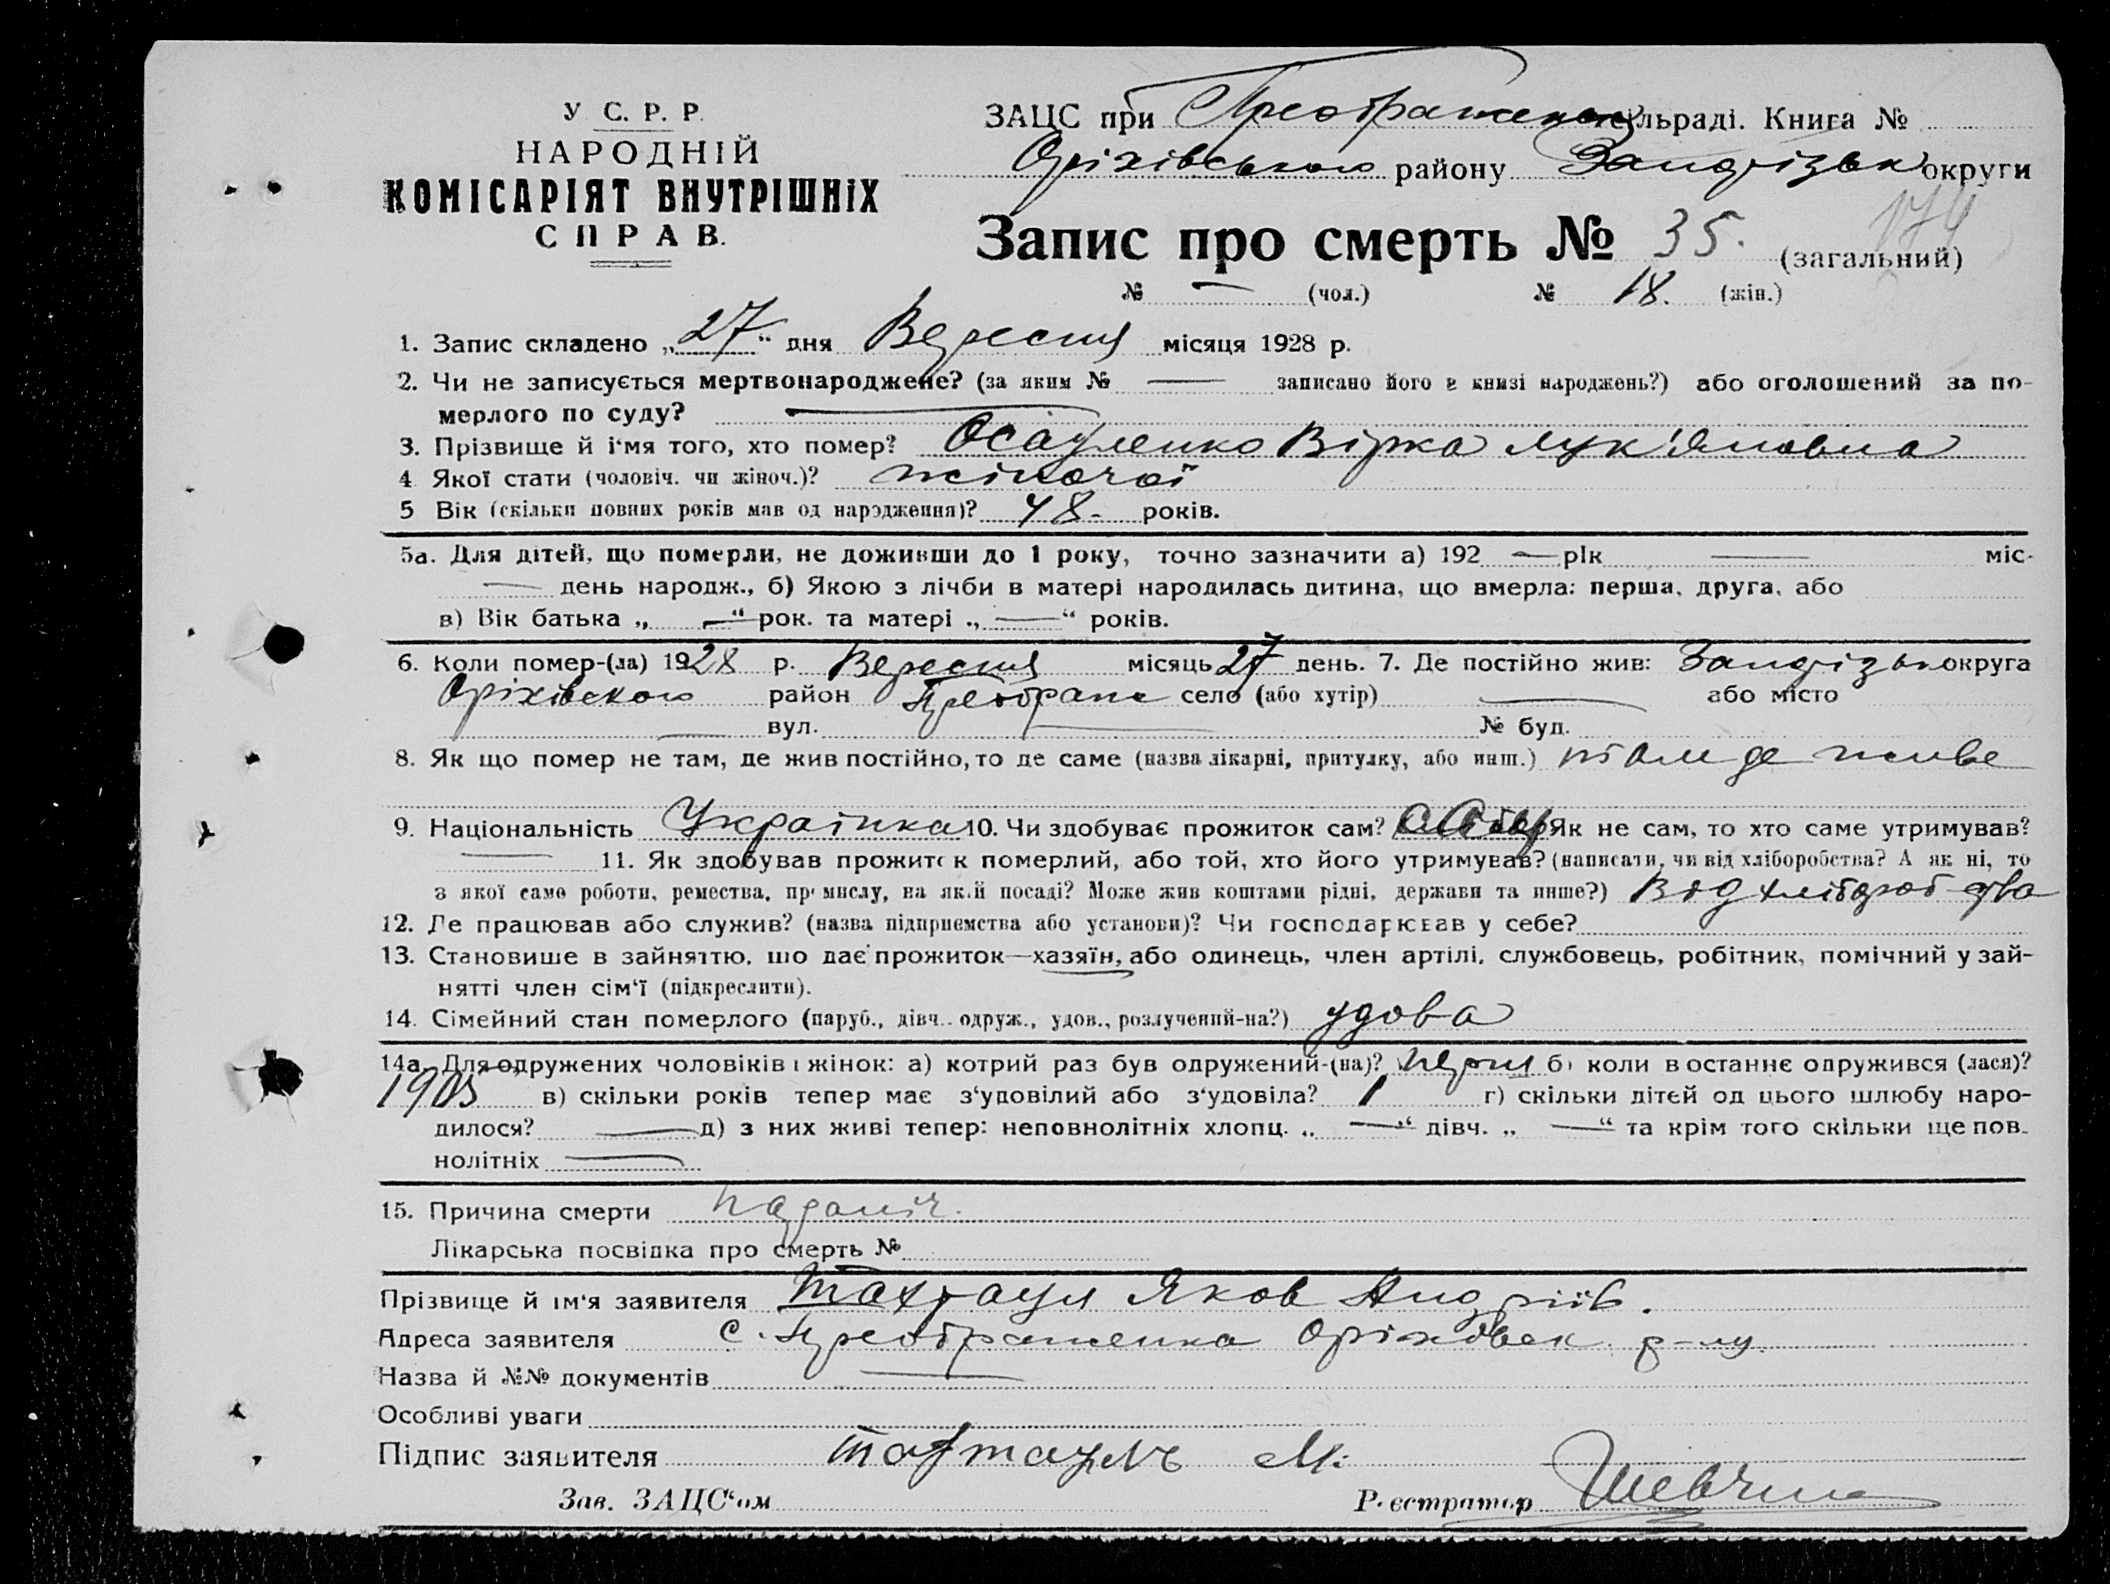 У С. Р. Р.
НАРОДНІЙ
КОМІСАРІЯТ ВНУТРІШНІХ
СПРАВ.
ЗАЦС при Преображенськ сільраді. Книга №
Оріхівського району Запорізьк округи
174
Запис про смерть № 35. (загальний)
№ — (чол.) № 18. (жін.)
1. Запис складено „27“ дня Вересня місяця 1928 р.
2. Чи не записується мертвонароджене? (за яким № — записано його в книзі народжень?) або оголошений за по-
мерлого по суду? —
3. Прізвище й ім‘я того, хто помер? Осауленко Вірка Лук‘яновна
4 Якої стати (чоловіч. чи жіноч.)? жіночої
5 Вік (скільки повних років мав од народження)? 48 - років.
5а. Для дітей, що померли, не доживши до 1 року, точно зазначити а) 192 — рік — міс-
— день народж., б) Якою з лічби в матері народилась дитина, що вмерла: перша, друга, або
в) Вік батька „ — “ рок. та матері „ — “ років.
6. Коли помер-(ла) 1928 р. Вересня місяць 27 день. 7. Де постійно жив: Запорізьк округа
Оріхівского район Преображ село (або хутір) — або місто
— вул. — № буд.
8. Як що помер не там, де жив постійно, то де саме (назва лікарні, притулку, або инш.) там де живе
9. Національність Українка 10. Чи здобуває прожиток сам? Як не сам, то хто саме утримував?
— 11. Як здобував прожиток померлий, або той, хто його утримував? (написати, чи від хліборобства? А як ні, то
з якої саме роботи, ремества, промислу, на якій посаді? Може жив коштами рідні, держави та инше?) Від хліборобства
12. Де працював або служив? (назва підприємства або установи)? Чи господарював у себе?
13. Становище в зайняттю, що дає прожиток—хазяїн, або одинець, член артілі, службовець, робітник, помічний у зай-
нятті член сім‘ї (підкреслити).
14. Сімейний стан померлого (паруб., дівч.. одруж., удов., розлучений-на?) удова
14а. Для одружених чоловіків і жінок: а) котрий раз був одружений-(на)? перш б) коли в останнє одружився (лася)?
1905 в) скільки років тепер має з‘удовілий або з‘удовіла? 1 г) скільки дітей од цього шлюбу наро-
дилося? — д) з них живі тепер: неповнолітніх хлопц. „ — “ дівч. „ — “ та крім того скільки ще пов-
нолітніх —
15. Причина смерти
Лікарська посвідка про смерть №
Прізвище й ім‘я заявителя Яков Андріїв.
Адреса заявителя с. Преображенка Оріховск. р-ну
Назва й №№ документів —
Особливі уваги
Підпис заявителя
Зав. ЗАЦС‘ом Реєстратор